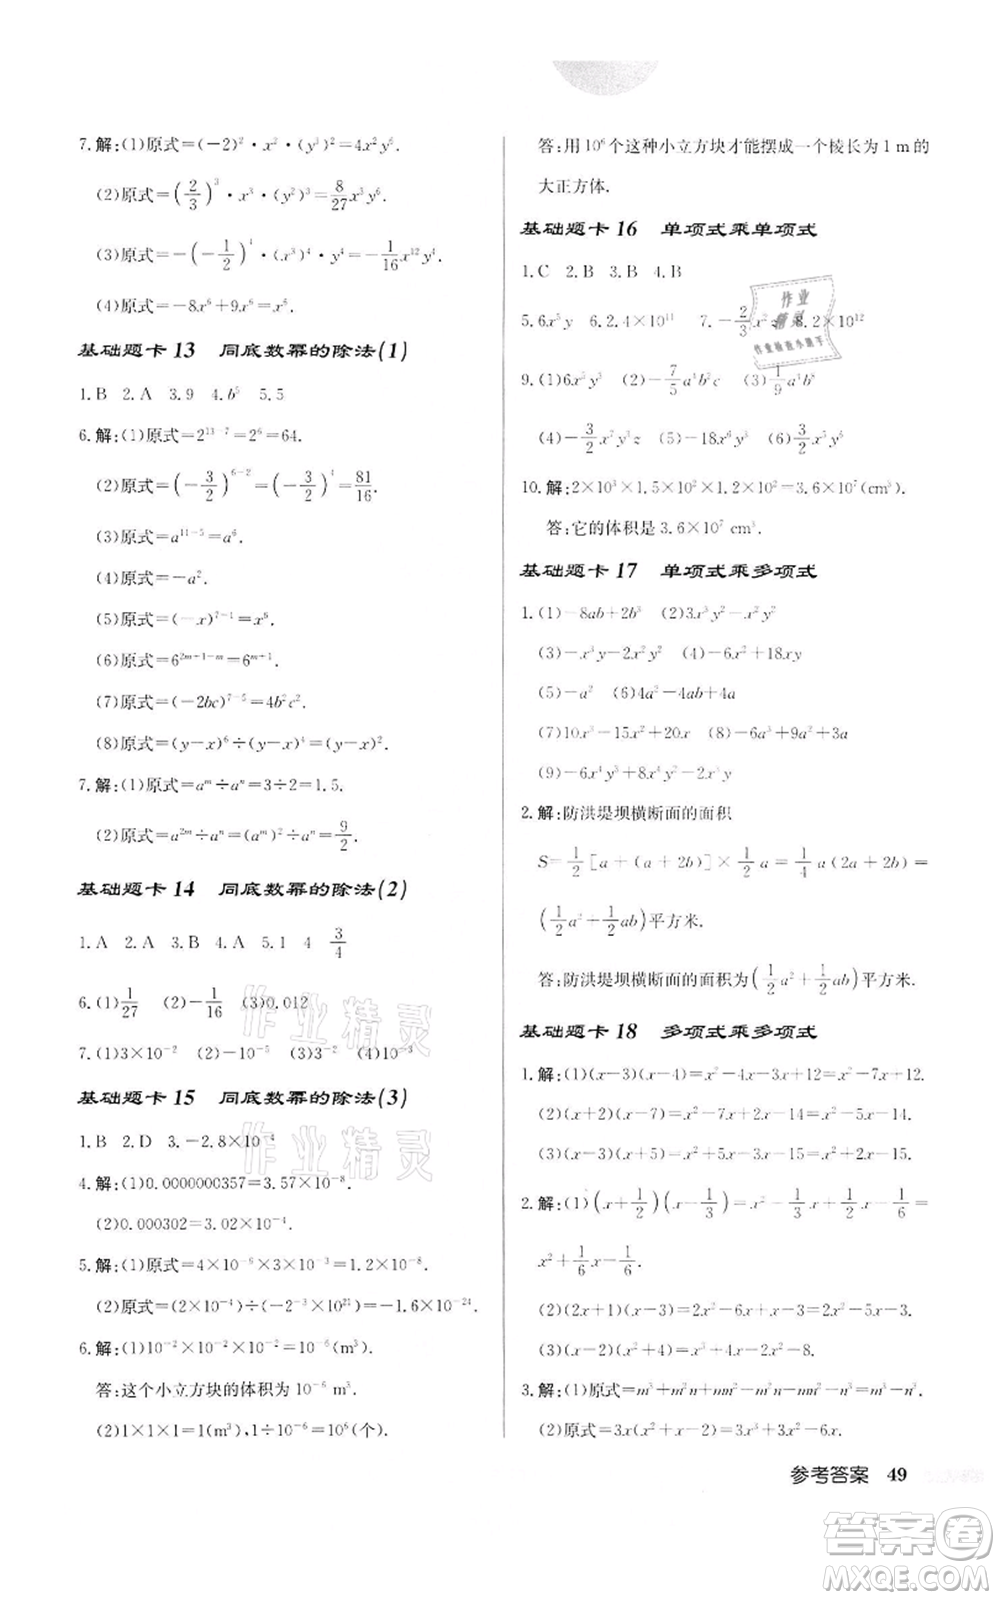 7.解:(1)原式=(−2)²·x²·(y³)²=4x²y⁶.
(2)原式=(2/3)³·x³·(y²)³=8/27x³y⁶.
(3)原式=−(−1/2)⁴·(x³)⁴·y⁴=−1/16x¹²y⁴.
(4)原式=−8x⁶+9x⁶=x⁶.
基础题卡13 同底数幂的除法(1)
1.B 2.A 3.9 4.b⁵ 5.5
6.解:(1)原式=2¹³⁻⁷=2⁶=64.
(2)原式=(−3/2)⁶⁻²=(−3/2)⁴=81/16.
(3)原式=a¹¹⁻⁵=a⁶.
(4)原式=−a².
(5)原式=(−x)⁷⁻¹=x⁶.
(6)原式=6²ᵐ⁺¹⁻ᵐ=6ᵐ⁺¹.
(7)原式=(−2bc)⁷⁻⁵=4b²c².
(8)原式=(y−x)⁶÷(y−x)⁴=(y−x)².
7.解:(1)原式=aᵐ÷aⁿ=3÷2=1.5.
(2)原式=a²ᵐ÷aⁿ=(aᵐ)²÷aⁿ=9/2.
基础题卡14 同底数幂的除法(2)
1.A 2.A 3.B 4.A 5.1 4 3/4
6.(1)1/27 (2)−1/16 (3)0.012
7.(1)3×10⁻² (2)−10⁻⁵ (3)10⁻⁴ (4)10⁻³
基础题卡15 同底数幂的除法(3)
1.B 2.D 3.−2.8×10⁻⁹
4.解:(1)0.0000000357=3.57×10⁻⁸.
(2)0.000302=3.02×10⁻⁴.
5.解:(1)原式=4×10⁻⁶×3×10⁻³=1.2×10⁻⁸.
(2)原式=(2×10⁻⁴)÷(−2⁻³×10²¹)=−1.6×10⁻²⁴.
6.解:(1)10⁻²×10⁻²×10⁻²=10⁻⁶(m³).
答:这个小立方块的体积为10⁻⁶ m³.
(2)1×1×1=1(m³),1÷10⁻⁶=10⁶(个).
答:用10⁶个这种小立方块才能摆成一个棱长为1 m的
大正方体.
基础题卡16 单项式乘单项式
1.C 2.B 3.B 4.B
5.6x⁵y 6.2.4×10¹¹ 7.−2/3x² 8.2×10¹²
9.(1)6x⁵y³ (2)−7/5a⁴b²c (3)1/9a³b
(4)−3/2x⁷y³z (5)−18x⁶y³ (6)3/2x⁵y⁶
10.解:2×10³×1.5×10²×1.2×10²=3.6×10⁷(cm³).
答:它的体积是3.6×10⁷ cm³.
基础题卡17 单项式乘多项式
1.(1)−8ab+2b³ (2)3x³y²−x²y²
(3)−x³y−x²y² (4)−6x²+18xy
(5)−a² (6)4a²−4ab+4a
(7)10x³−15x²+20x (8)−6a³+9a²+3a
(9)−6x³+4x²−2x
2.解:防洪堤坝横断面的面积
S=1/2[a+(a+2b)]×1/2a=1/4a(2a+2b)=
(1/2a²+1/2ab)平方米.
答:防洪堤坝横断面的面积为(1/2a²+1/2ab)平方米.
基础题卡18 多项式乘多项式
1.解:(1)(x−3)(x−4)=x²−4x−3x+12=x²−7x+12.
(2)(x+2)(x−7)=x²−7x+2x−14=x²−5x−14.
(3)(x−5)(x+3)=x²+3x−5x−15=x²−2x−15.
2.解:(1)(x+1/2)(x−1/3)=x²−1/3x+1/2x−1/6=
x²+1/6x−1/6.
(2)(2x+1)(x−3)=2x²−6x+x−3=2x²−5x−3.
(3)(x−2)(x+4)=x²+4x−2x−8=x²+2x−8.
3.解:(1)原式=m³+m²n+mn²−m²n−mn²−n³=m³−n³.
(2)原式=3x(x²+2x+1)=3x³+6x²+3x.
参考答案 49
作业精灵
作业精灵
作业
精灵
作业检查小能手
答案圈
MXQE.COM